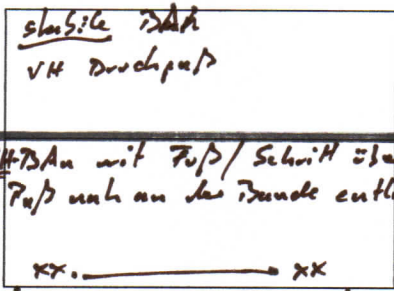 stabile BAh
VH Druckpaß
H-BAn mit Fuß/Schritt übe
Paß nah an der Bande entl
xx. xx